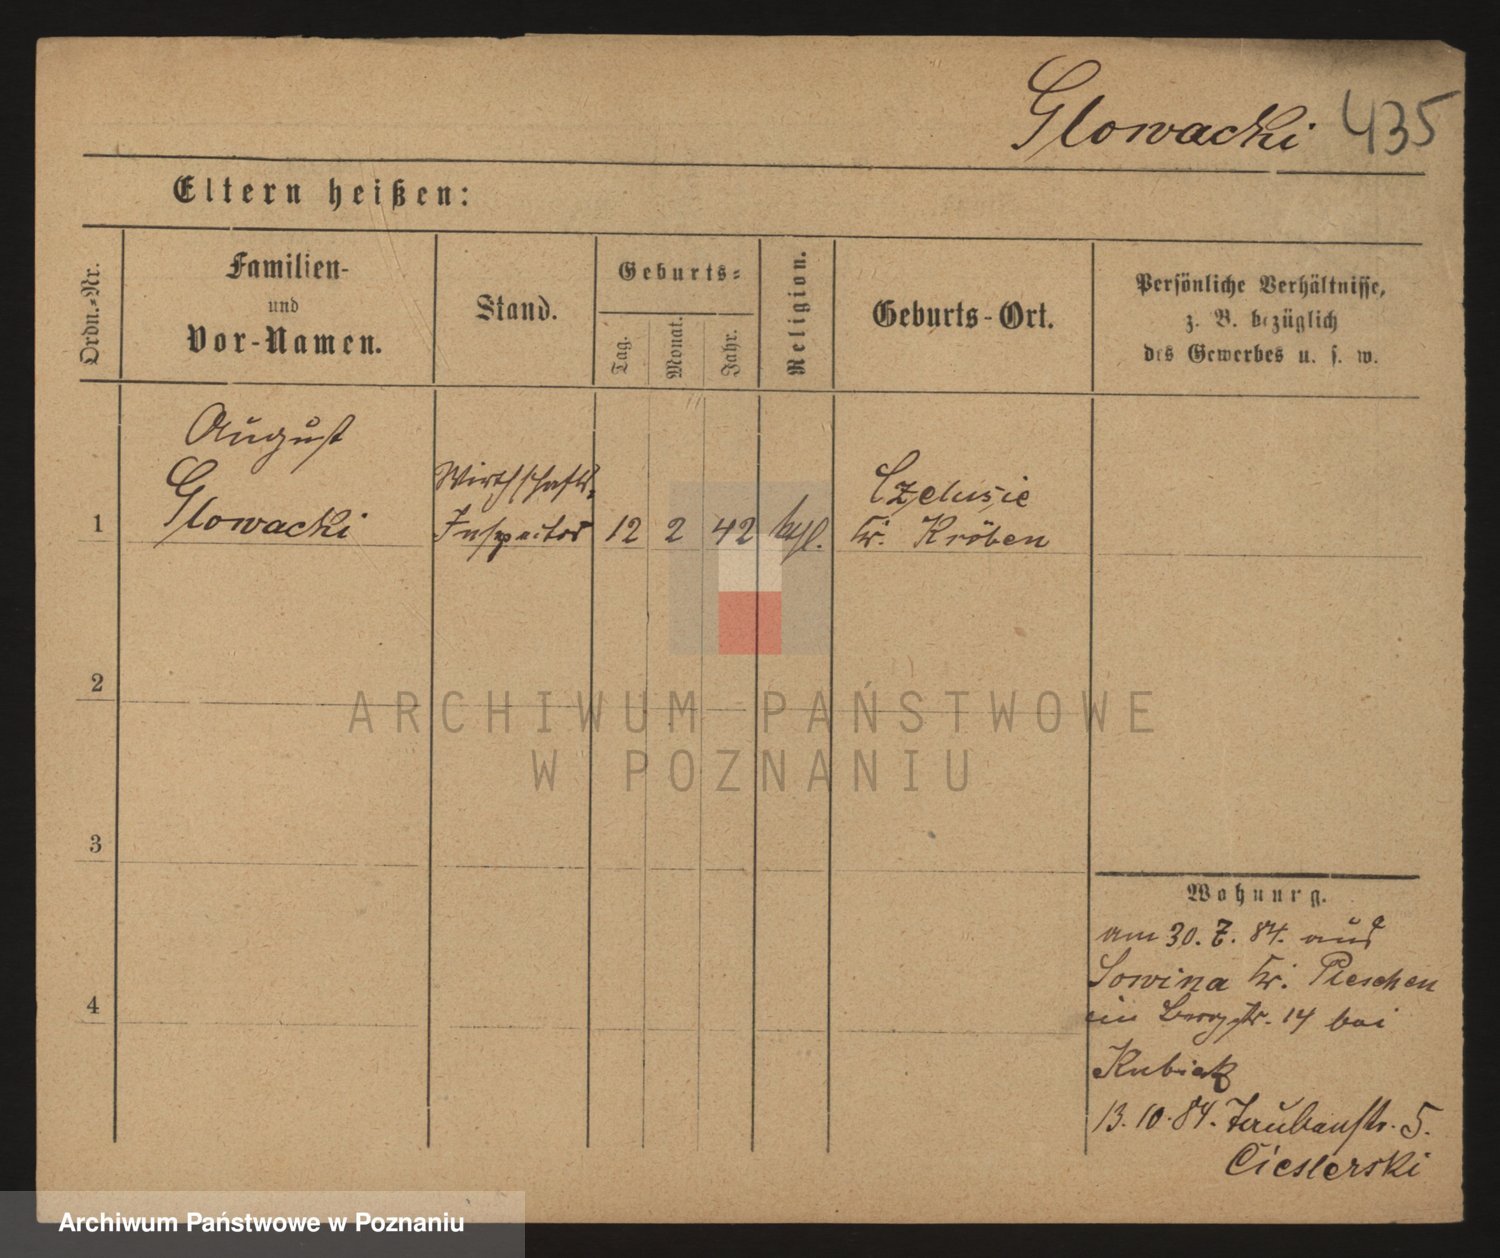 Glowacki 435
Eltern heißen:
Ordn.-Nr.
Familien-
und
Vor-Namen.
Stand.
Geburts-
Tag.
Monat.
Jahr.
Religion.
Geburts-Ort.
Persönliche Verhältnisse,
z. B. bezüglich
des Gewerbes u. s. w.
August
Glowacki
Wirthschafts-
Inspector
1
12 2 42
Czelusie
Kr. Kröben
2
3
4
Wohnung.
am 30. 7. 84. aus
Sowina Kr. Pleschen
in Bergstr. 14 bei
Kubiak
13. 10. 84. 5.
Cieslerski
ARCHIWUM PAŃSTWOWE
W POZNANIU
Archiwum Państwowe w Poznaniu